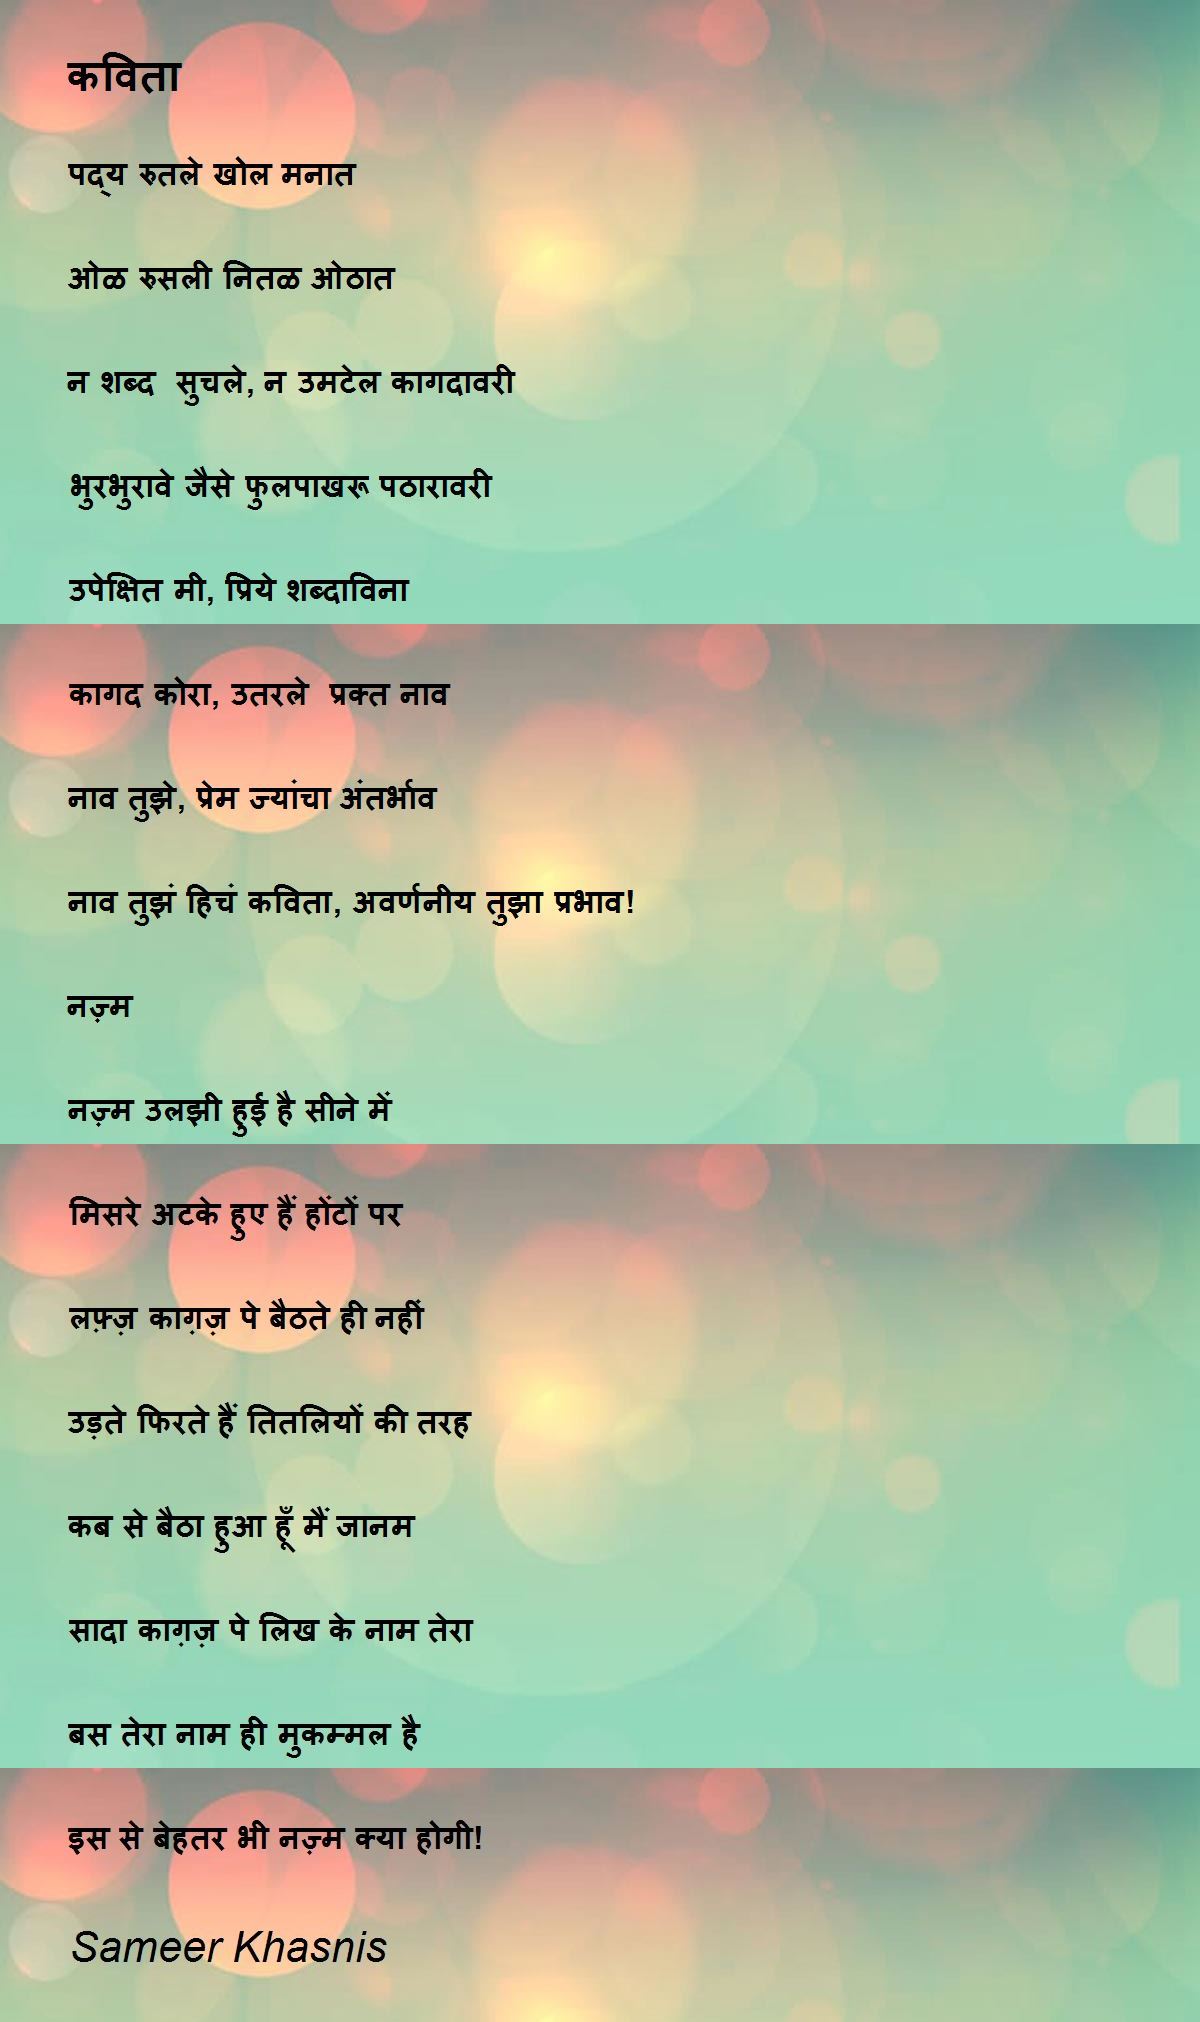 कविता
पद्य रुतले खोल मनात
ओळ रुसली नितळ ओठात
न शब्द सुचले, न उमटेल कागदावरी
भुरभुरावे जैसे फुलपाखरू पठारावरी
उपेक्षित मी, प्रिये शब्दाविना
कागद कोरा, उतरले प्रक्त नाव
नाव तुझे, प्रेम ज्यांचा अंतर्भाव
नाव तुझं हिचं कविता, अवर्णनीय तुझा प्रभाव!
नज़्म
नज़्म उलझी हुई है सीने में
मिसरे अटके हुए हैं होंटों पर
लफ़्ज़ काग़ज़ पे बैठते ही नहीं
उड़ते फिरते हैं तितलियों की तरह
कब से बैठा हुआ हूँ मैं जानम
सादा काग़ज़ पे लिख के नाम तेरा
बस तेरा नाम ही मुकम्मल है
इस से बेहतर भी नज़्म क्या होगी!
Sameer Khasnis